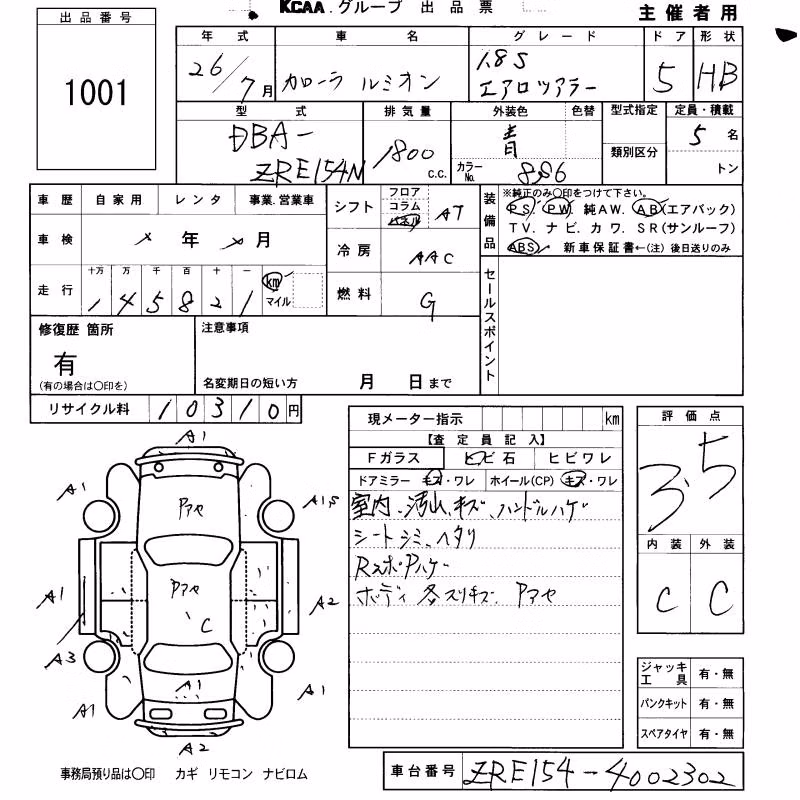 KCAA.グループ 出品票
主催者用
出品番号
1001
年式 車名 グレード ドア 形状
26/7月 カローラ ルミオン 1.8S エアロツアラー 5 HB
型式 排気量 外装色 色替 型式指定 定員・積載
DBA-ZRE154N 1800 c.c. 青 カラーNo. 8S6 類別区分 5名
トン
車歴 自家用 レンタ 事業.営業車
シフト フロア コラム パネル AT
装備品 ※純正のみ○印をつけて下さい。
PS. PW. 純AW. AB(エアバック)
TV. ナビ. カワ. SR(サンルーフ)
ABS 新車保証書←(注) 後日送りのみ
車検 年 月
冷房 AAC
走行 十万 万 千 百 十 一
1 4 5 8 2 1 km マイル
燃料 G
セールスポイント
修復歴 箇所
有
(有の場合は○印を)
注意事項
名変期日の短い方 月 日まで
リサイクル料 10310円
現メーター指示 km
評価点
3.5
【査定員記入】
Fガラス トビ石 ヒビワレ
ドアミラー キズ・ワレ ホイール(CP) キズ・ワレ
室内、汚れ、キズ、ハンドルハゲ
シートシミ、ヘタリ
Rスポ・Pハゲ
ボディ 各スリキズ Pアセ
内装 外装
C C
A1
A1
A1,5
Pアセ
A1
Pアセ
A2
C
A3
A1
A1
A1
A2
ジャッキ工具 有・無
パンクキット 有・無
スペアタイヤ 有・無
事務局預り品は○印 カギ リモコン ナビロム
車台番号 ZRE154-4002302